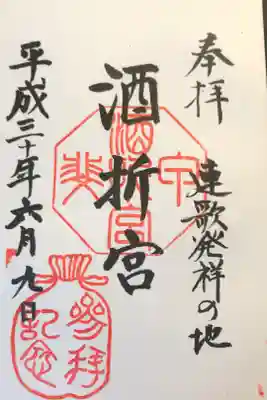 奉拝
連歌発祥の地
酒折宮
平成三十年六月九日
参拝
記念